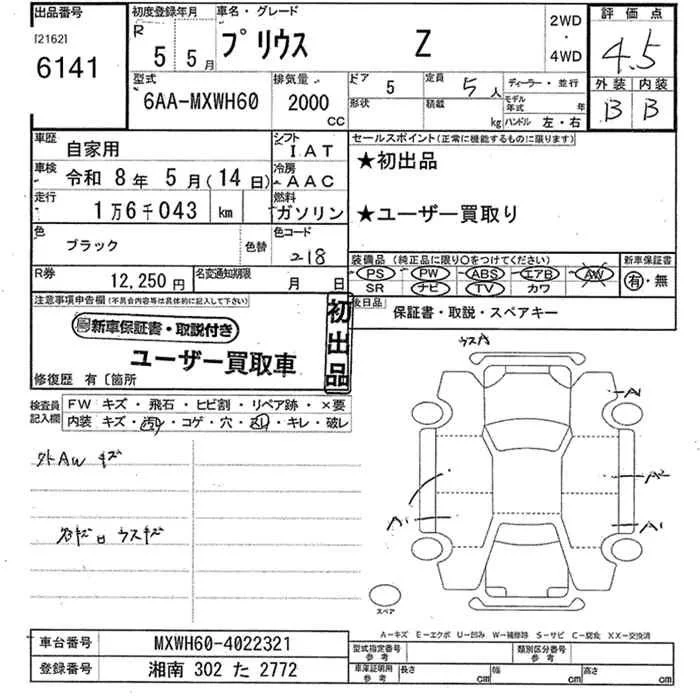 出品番号
[2162]
6141
初度登録年月
R 5年 5月
車名・グレード
プリウス Z
2WD
・
4WD
評価点
4.5
外装 内装
B B
型式
6AA-MXWH60
排気量
2000 cc
ドア 5
定員 5人
ディーラー・並行
形状
積載 kg
モデル年式 年
ハンドル 左・右
車歴 自家用
シフト IAT
セールスポイント(正常に機能するものに限ります)
★初出品
車検 令和 8年 5月(14日)
冷房 AAC
走行 1万6千043 km
燃料 ガソリン
★ユーザー買取り
色 ブラック
色替
色コード 218
装備品(純正品に限り○をつけてください)
PS PW ABS エアB AW
SR ナビ TV カワ
新車保証書
有・無
R券 12,250円
名変通知期限 月 日
注意事項申告欄(不具合内容等は具体的に記入して下さい)
新車保証書・取説付き
ユーザー買取車
初出品
後日品
保証書・取説・スペアキー
修復歴 有〔箇所
検査員記入欄
FW キズ・飛石・ヒビ割・リペア跡・×要
内装 キズ・汚れ・コゲ・穴・凹・キレ・破レ
外AW キズ
ウスキズ
ウスA
A1
A2
A1
A1
スペア
A-キズ E-エクボ U-凹み W-補修跡 S-サビ C-腐食 XX-交換済
車台番号 MXWH60-4022321
登録番号 湘南 302 た 2772
型式指定番号 参考
類別区分番号 参考
車庫証明用 参考
長さ cm 幅 cm 高さ cm